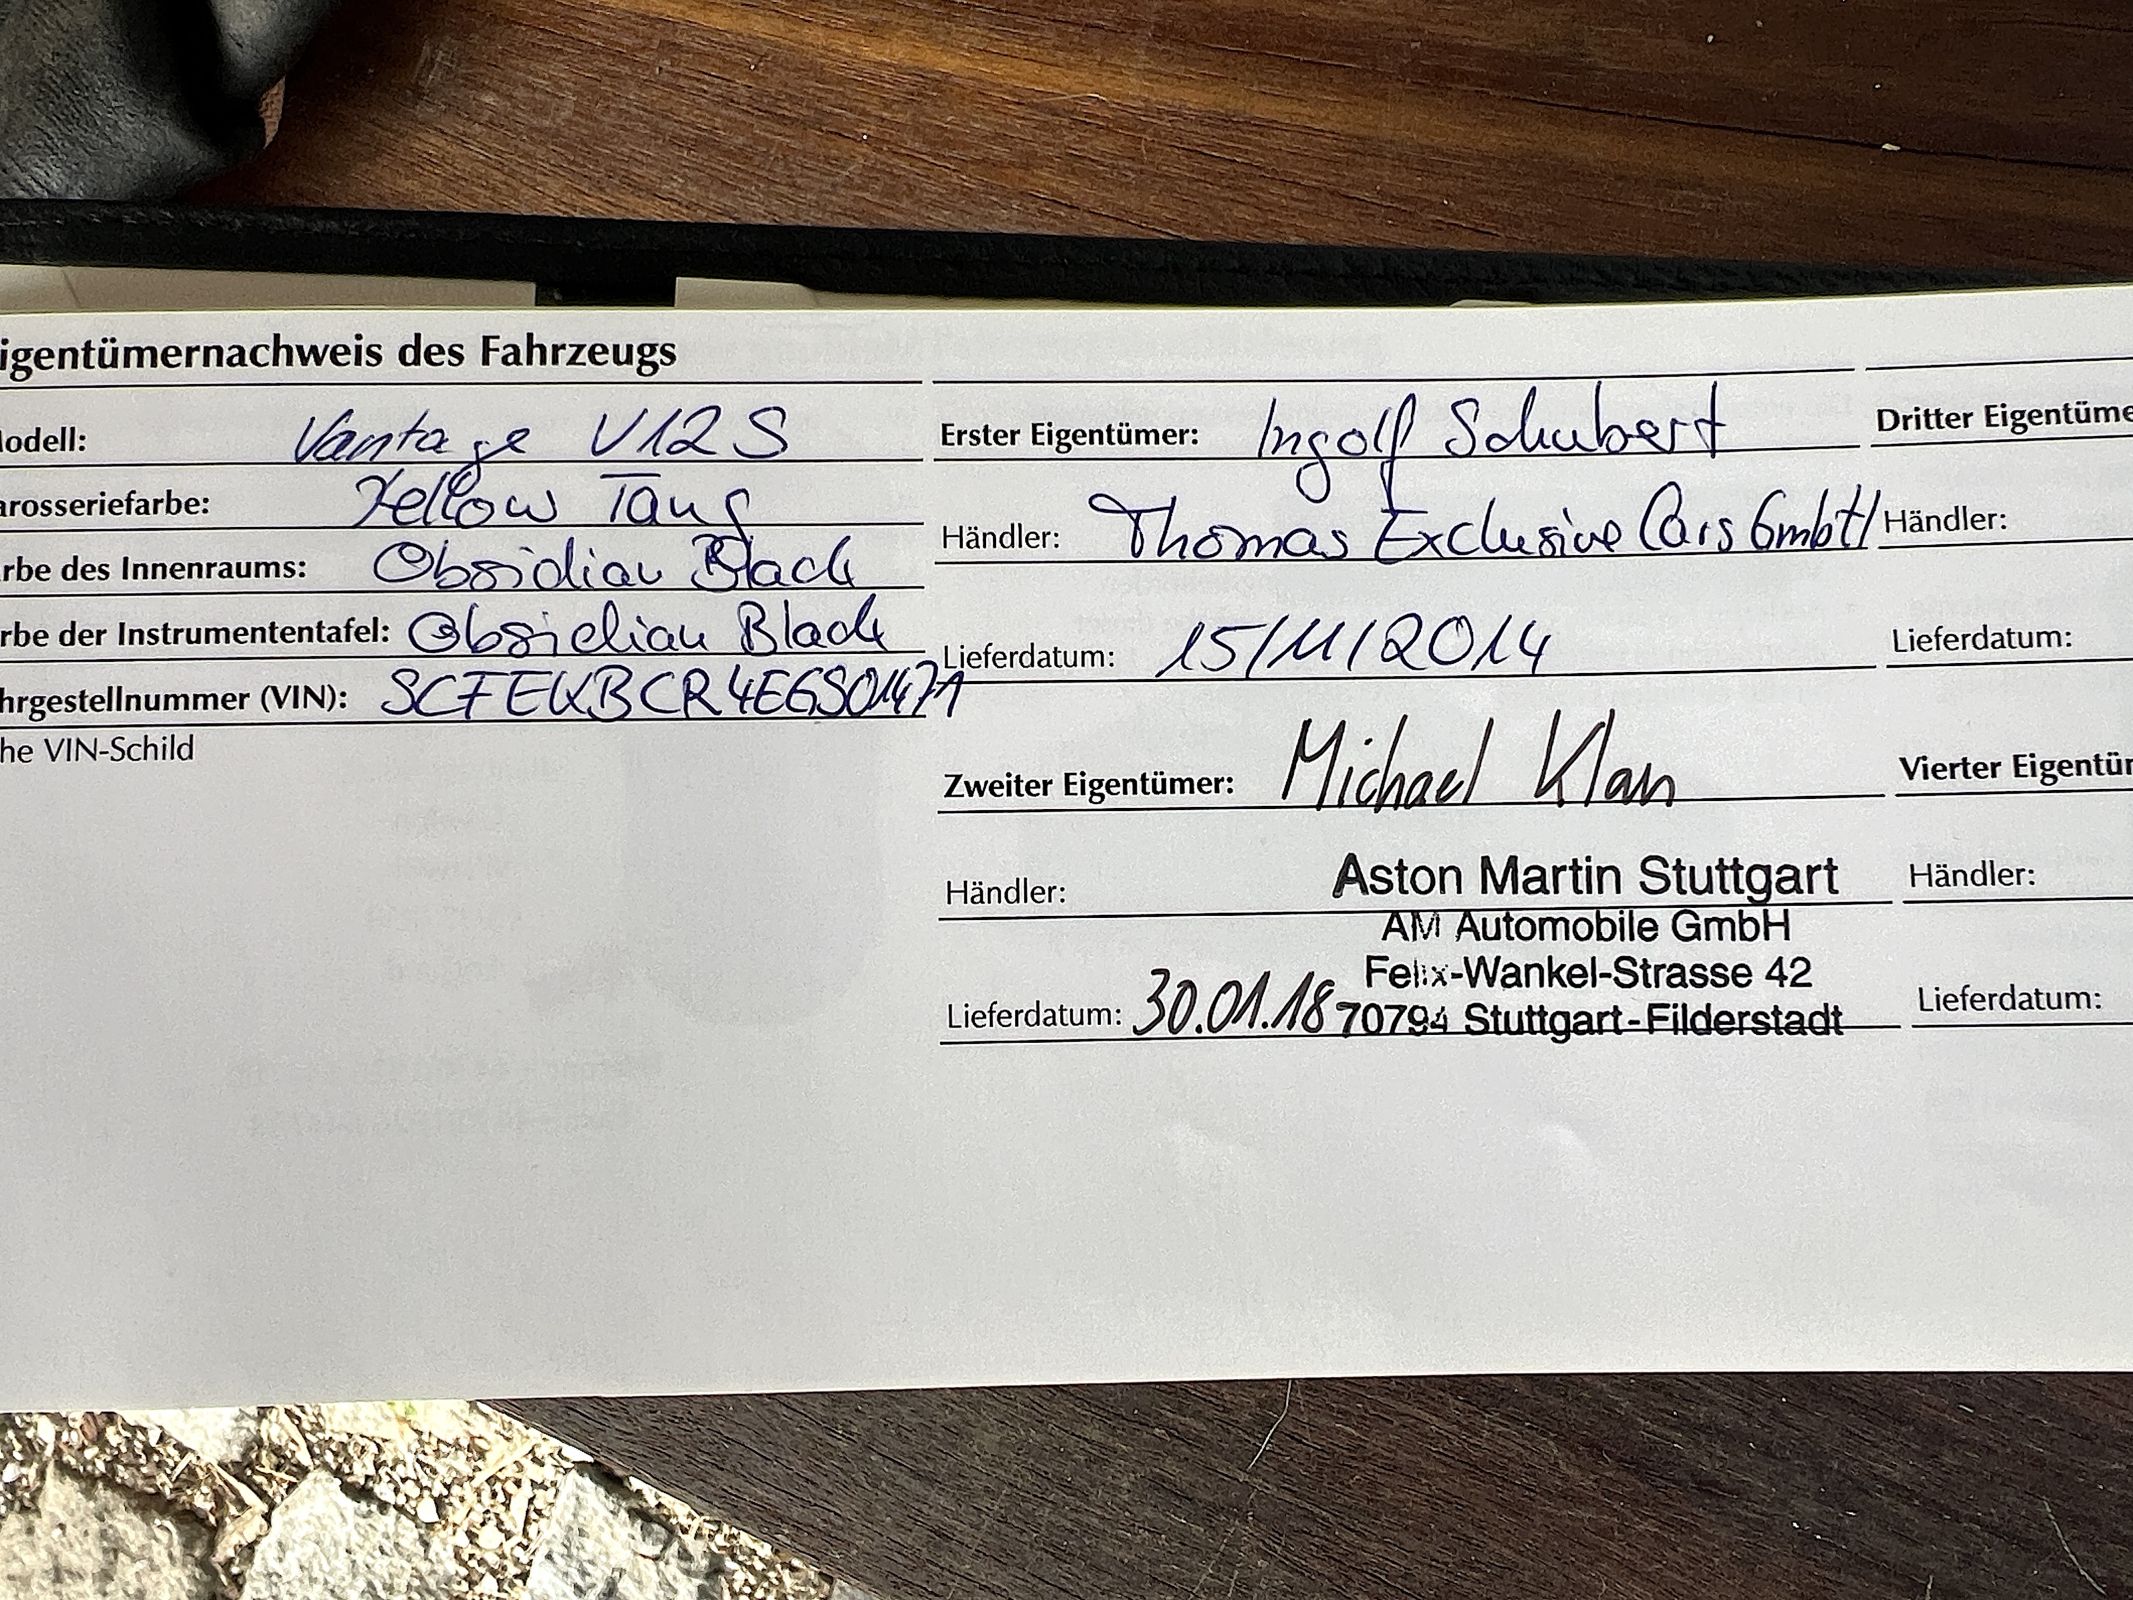 igentümernachweis des Fahrzeugs
odell: Vantage V12 S
arosseriefarbe: Yellow Tang
rbe des Innenraums: Obsidian Black
rbe der Instrumententafel: Obsidian Black
hrgestellnummer (VIN):
he VIN-Schild
Erster Eigentümer: Ingolf Schubert
Händler: Thomas Exclusive Cars GmbH
Lieferdatum: 15/11/2014
Zweiter Eigentümer: Michael Klan
Händler: Aston Martin Stuttgart
AM Automobile GmbH
Felix-Wankel-Strasse 42
Lieferdatum: 30.01.18 70794 Stuttgart-Filderstadt
Dritter Eigentüme
Händler:
Lieferdatum:
Vierter Eigentür
Händler:
Lieferdatum: